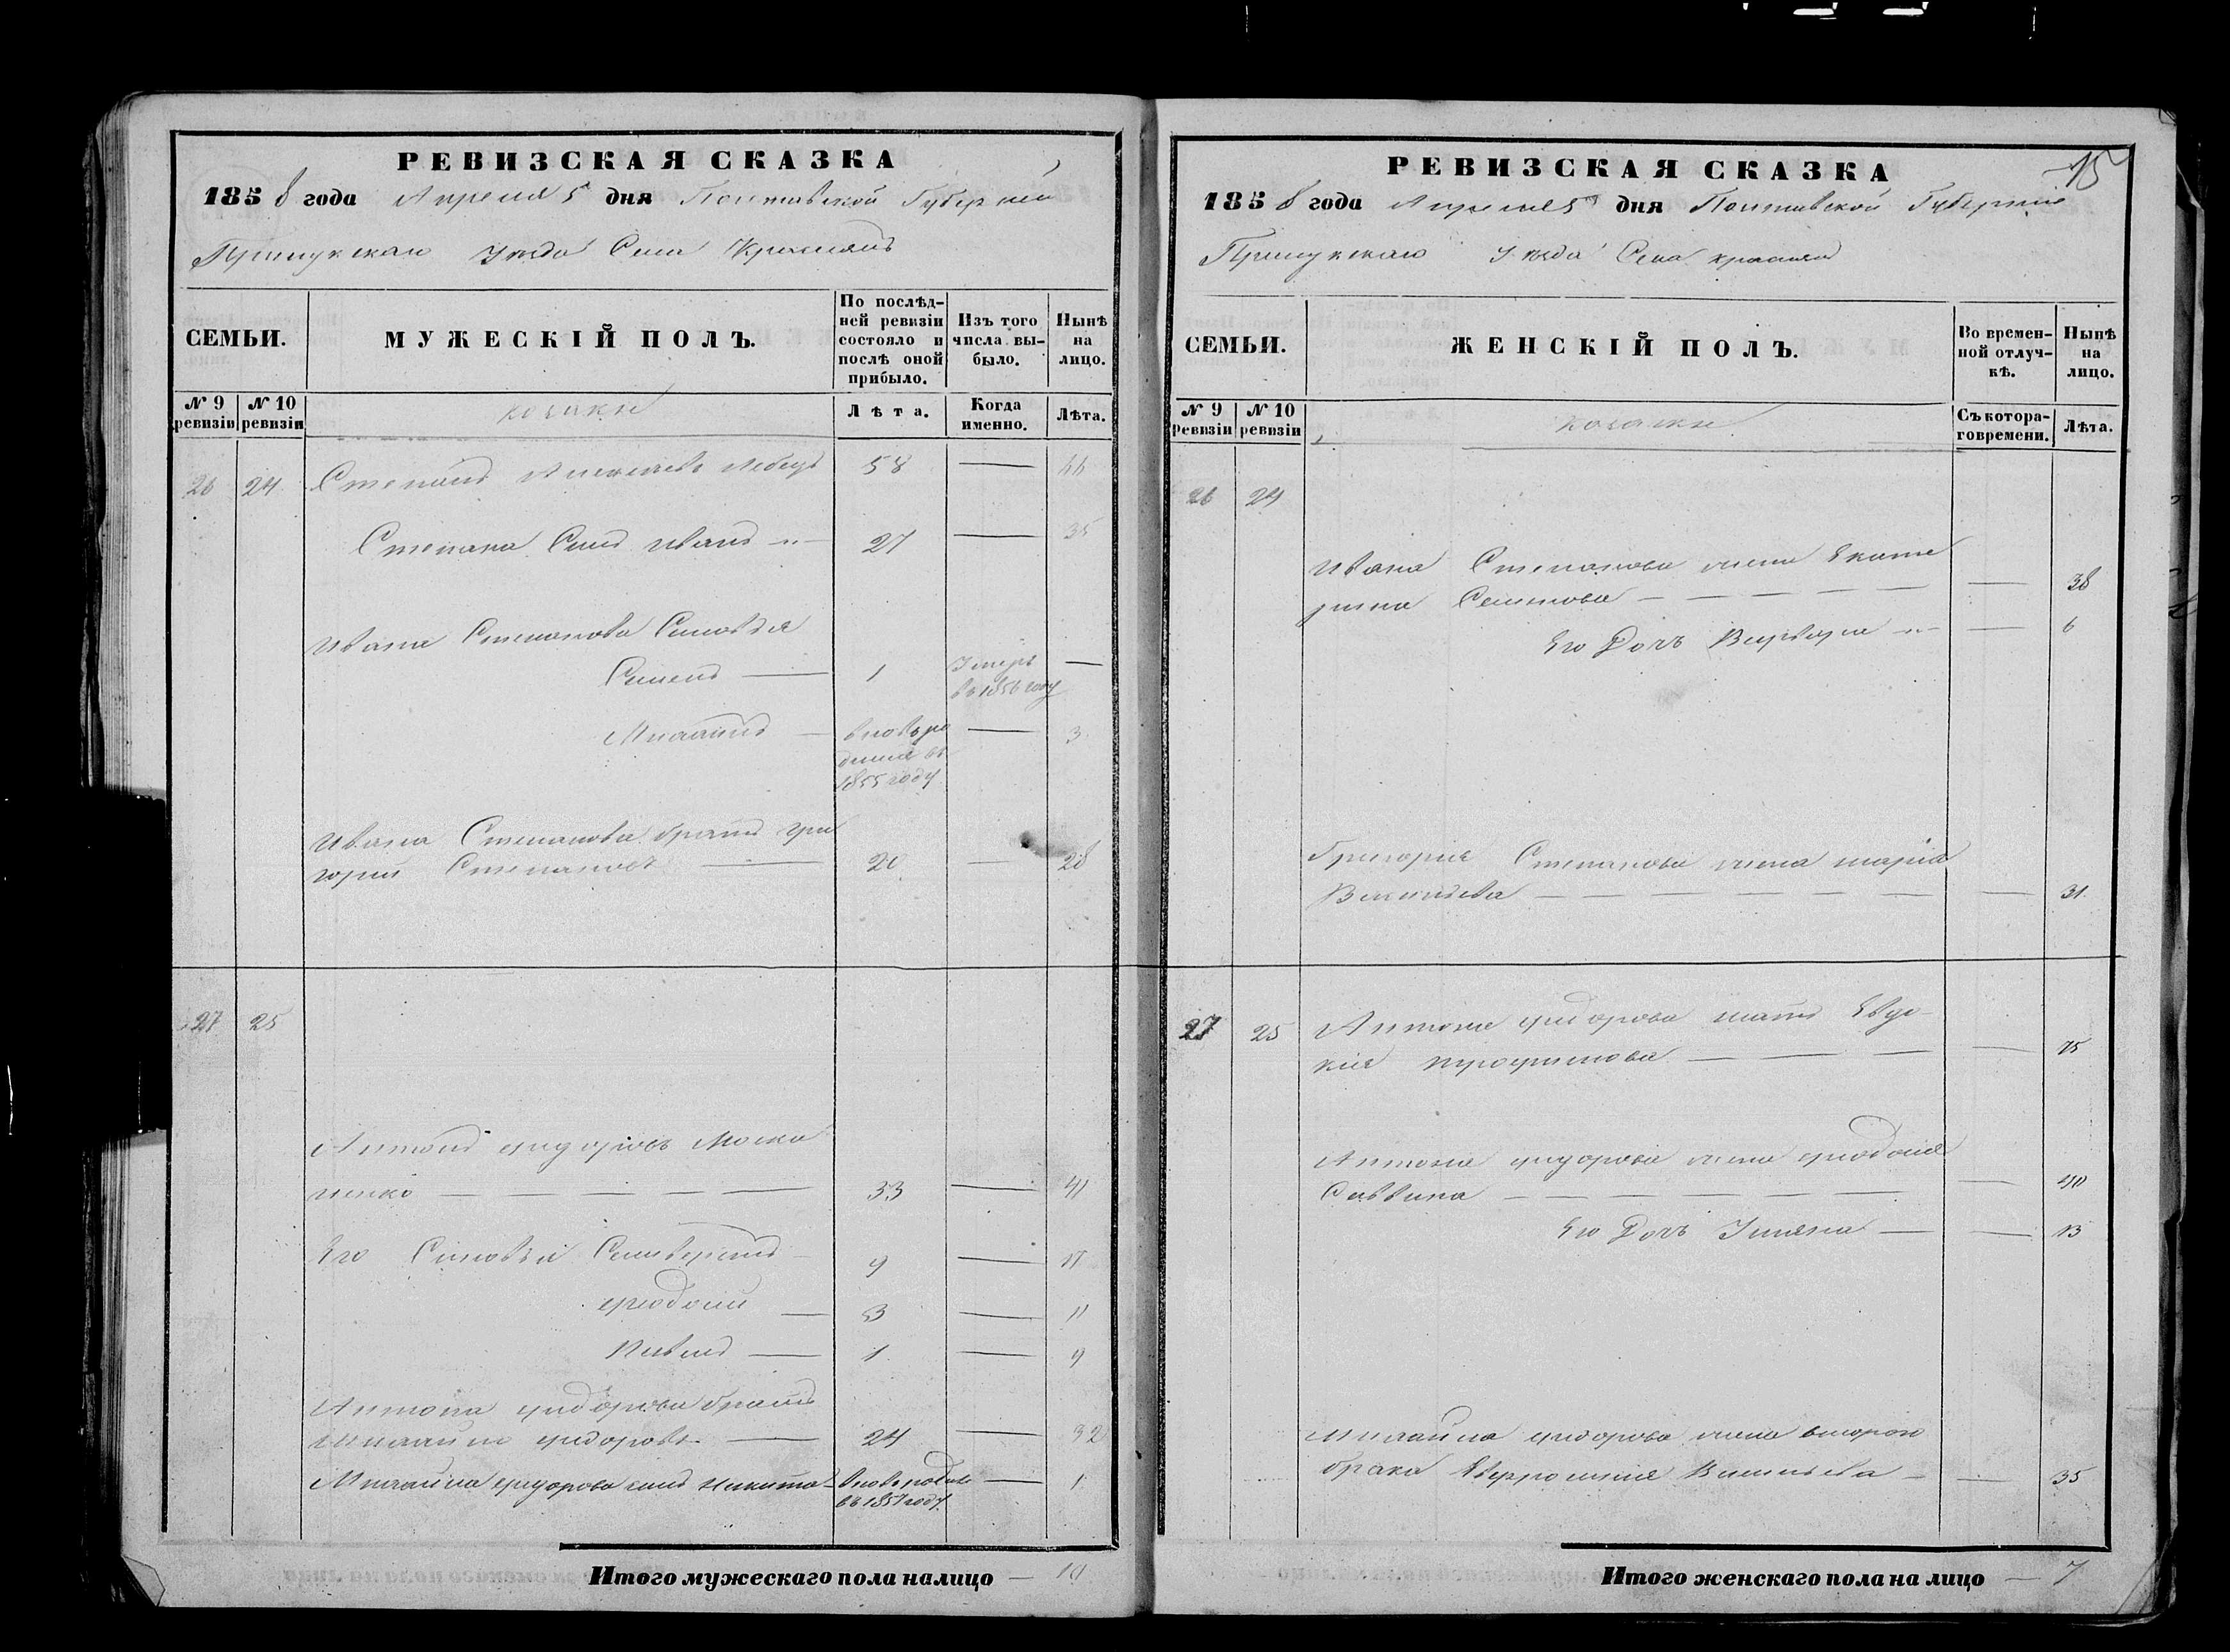 РЕВИЗСКАЯ СКАЗКА
1858 года Апреля 5 дня Полтавской Губерніи
Прилукскаго Уезда Села Краслянъ
СЕМЬИ.
МУЖЕСКІЙ ПОЛЪ.
По послѣд-
ней ревизіи
состояло и
послѣ оной
прибыло.
Изъ того
числа вы-
было.
Нынѣ
на
лицо.
№ 9
ревизіи
№ 10
ревизіи
козаки
Лѣта.
Когда
именно.
Лѣта.
26 24 Степанъ Алексѣевъ Лебедь 58 — 66
Степана Сынъ Иванъ 27 — 35
Ивана Степанова Сыновья
Семенъ — 1 Умеръ —
въ 1856 году
Михаилъ — вновь ро — 3
денный въ
1855 году
Ивана Степанова братъ Гри
горий Степановъ — 20 — 28
27 25
Антонъ Фидоровъ Моска
ленко — — — — — 33 — 41
Его Сыновья Селиверстъ 9 — 17
Феодосий — 3 — 11
Павелъ — 1 — 9
Антона Фидорова братъ
Михайло Фидоровъ — 24 — 32
Михайла Фидорова сынъ Никита — вновь родил — 1
въ 1857 году
Итого мужескаго пола налицо — 10
15
РЕВИЗСКАЯ СКАЗКА
1858 года Апреля 5 дня Полтавской Губерніи
Прилукскаго Уезда Села Краслянъ
СЕМЬИ.
ЖЕНСКІЙ ПОЛЪ.
Во времен-
ной отлуч-
кѣ.
Нынѣ
на
лицо.
№ 9
Ревизіи
№ 10
ревизіи
козачки
Съ котора-
го времени.
Лѣта.
26 24
Ивана Степанова жена Екате
рина Семенова — — — — — — 38
Его Дочь Варвара — 6
Григория Степанова жена Марія
Васильева — — — — — — — 31
27 25 Антона Фидорова мать Евдо-
кия Трофимова — — — — 75
Антона Фидорова жена Феодосия
Саввина — — — — — — 40
Его Дочь Ульяна — — 13
Михайла Фидорова жена второго
брака Евфросиния Васильева — — 35
Итого женскаго пола на лицо — 7